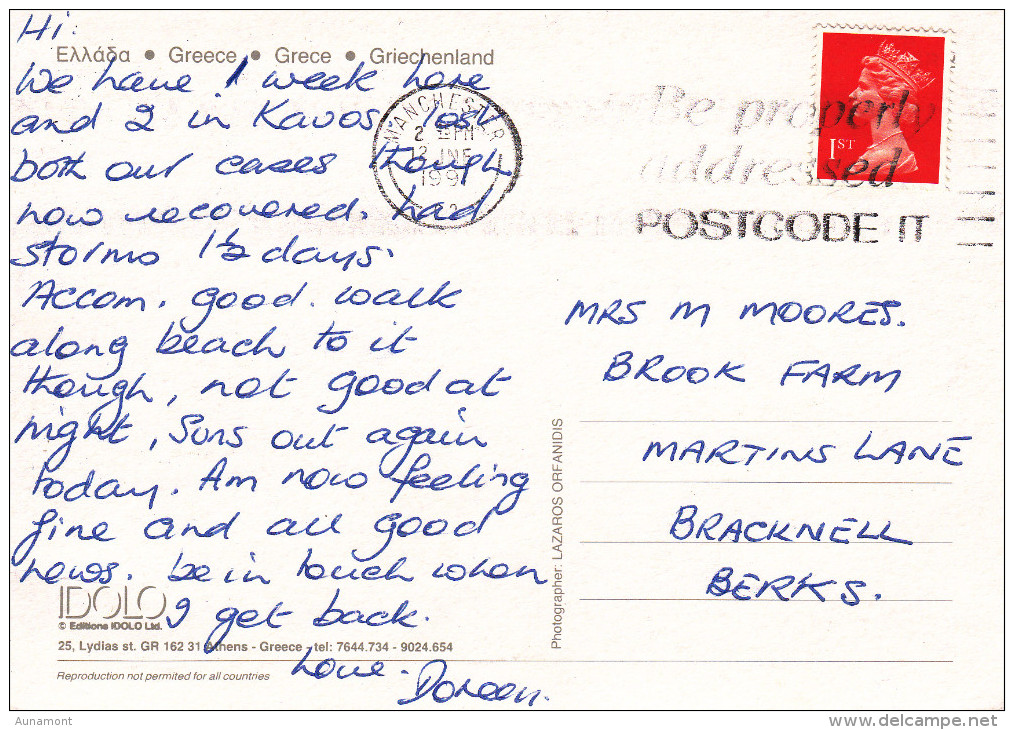 Hi.
Ελλάδα • Greece • Grece • Griechenland
We have 1 week here
and 2 in Kavos, lost
both our cases though
now recovered. had
storms 1½ days.
Accom. good. walk
along beach to it
though, not good at
night, Suns out again
today. Am now feeling
fine and all good
news. be in touch when
I get back.
Love. Doreen.
IDOLO
© Editions IDOLO Ltd.
25, Lydias st. GR 162 31 Athens - Greece - tel: 7644.734 - 9024.654
Reproduction not permited for all countries
Photographer: LAZAROS ORFANIDIS
MANCHESTER
2 PM
12 JNE
199
Be properly
addressed
POSTCODE IT
1ST
MRS M MOORES.
BROOK FARM
MARTINS LANE
BRACKNELL
BERKS.
Aunamont
delcampe.net